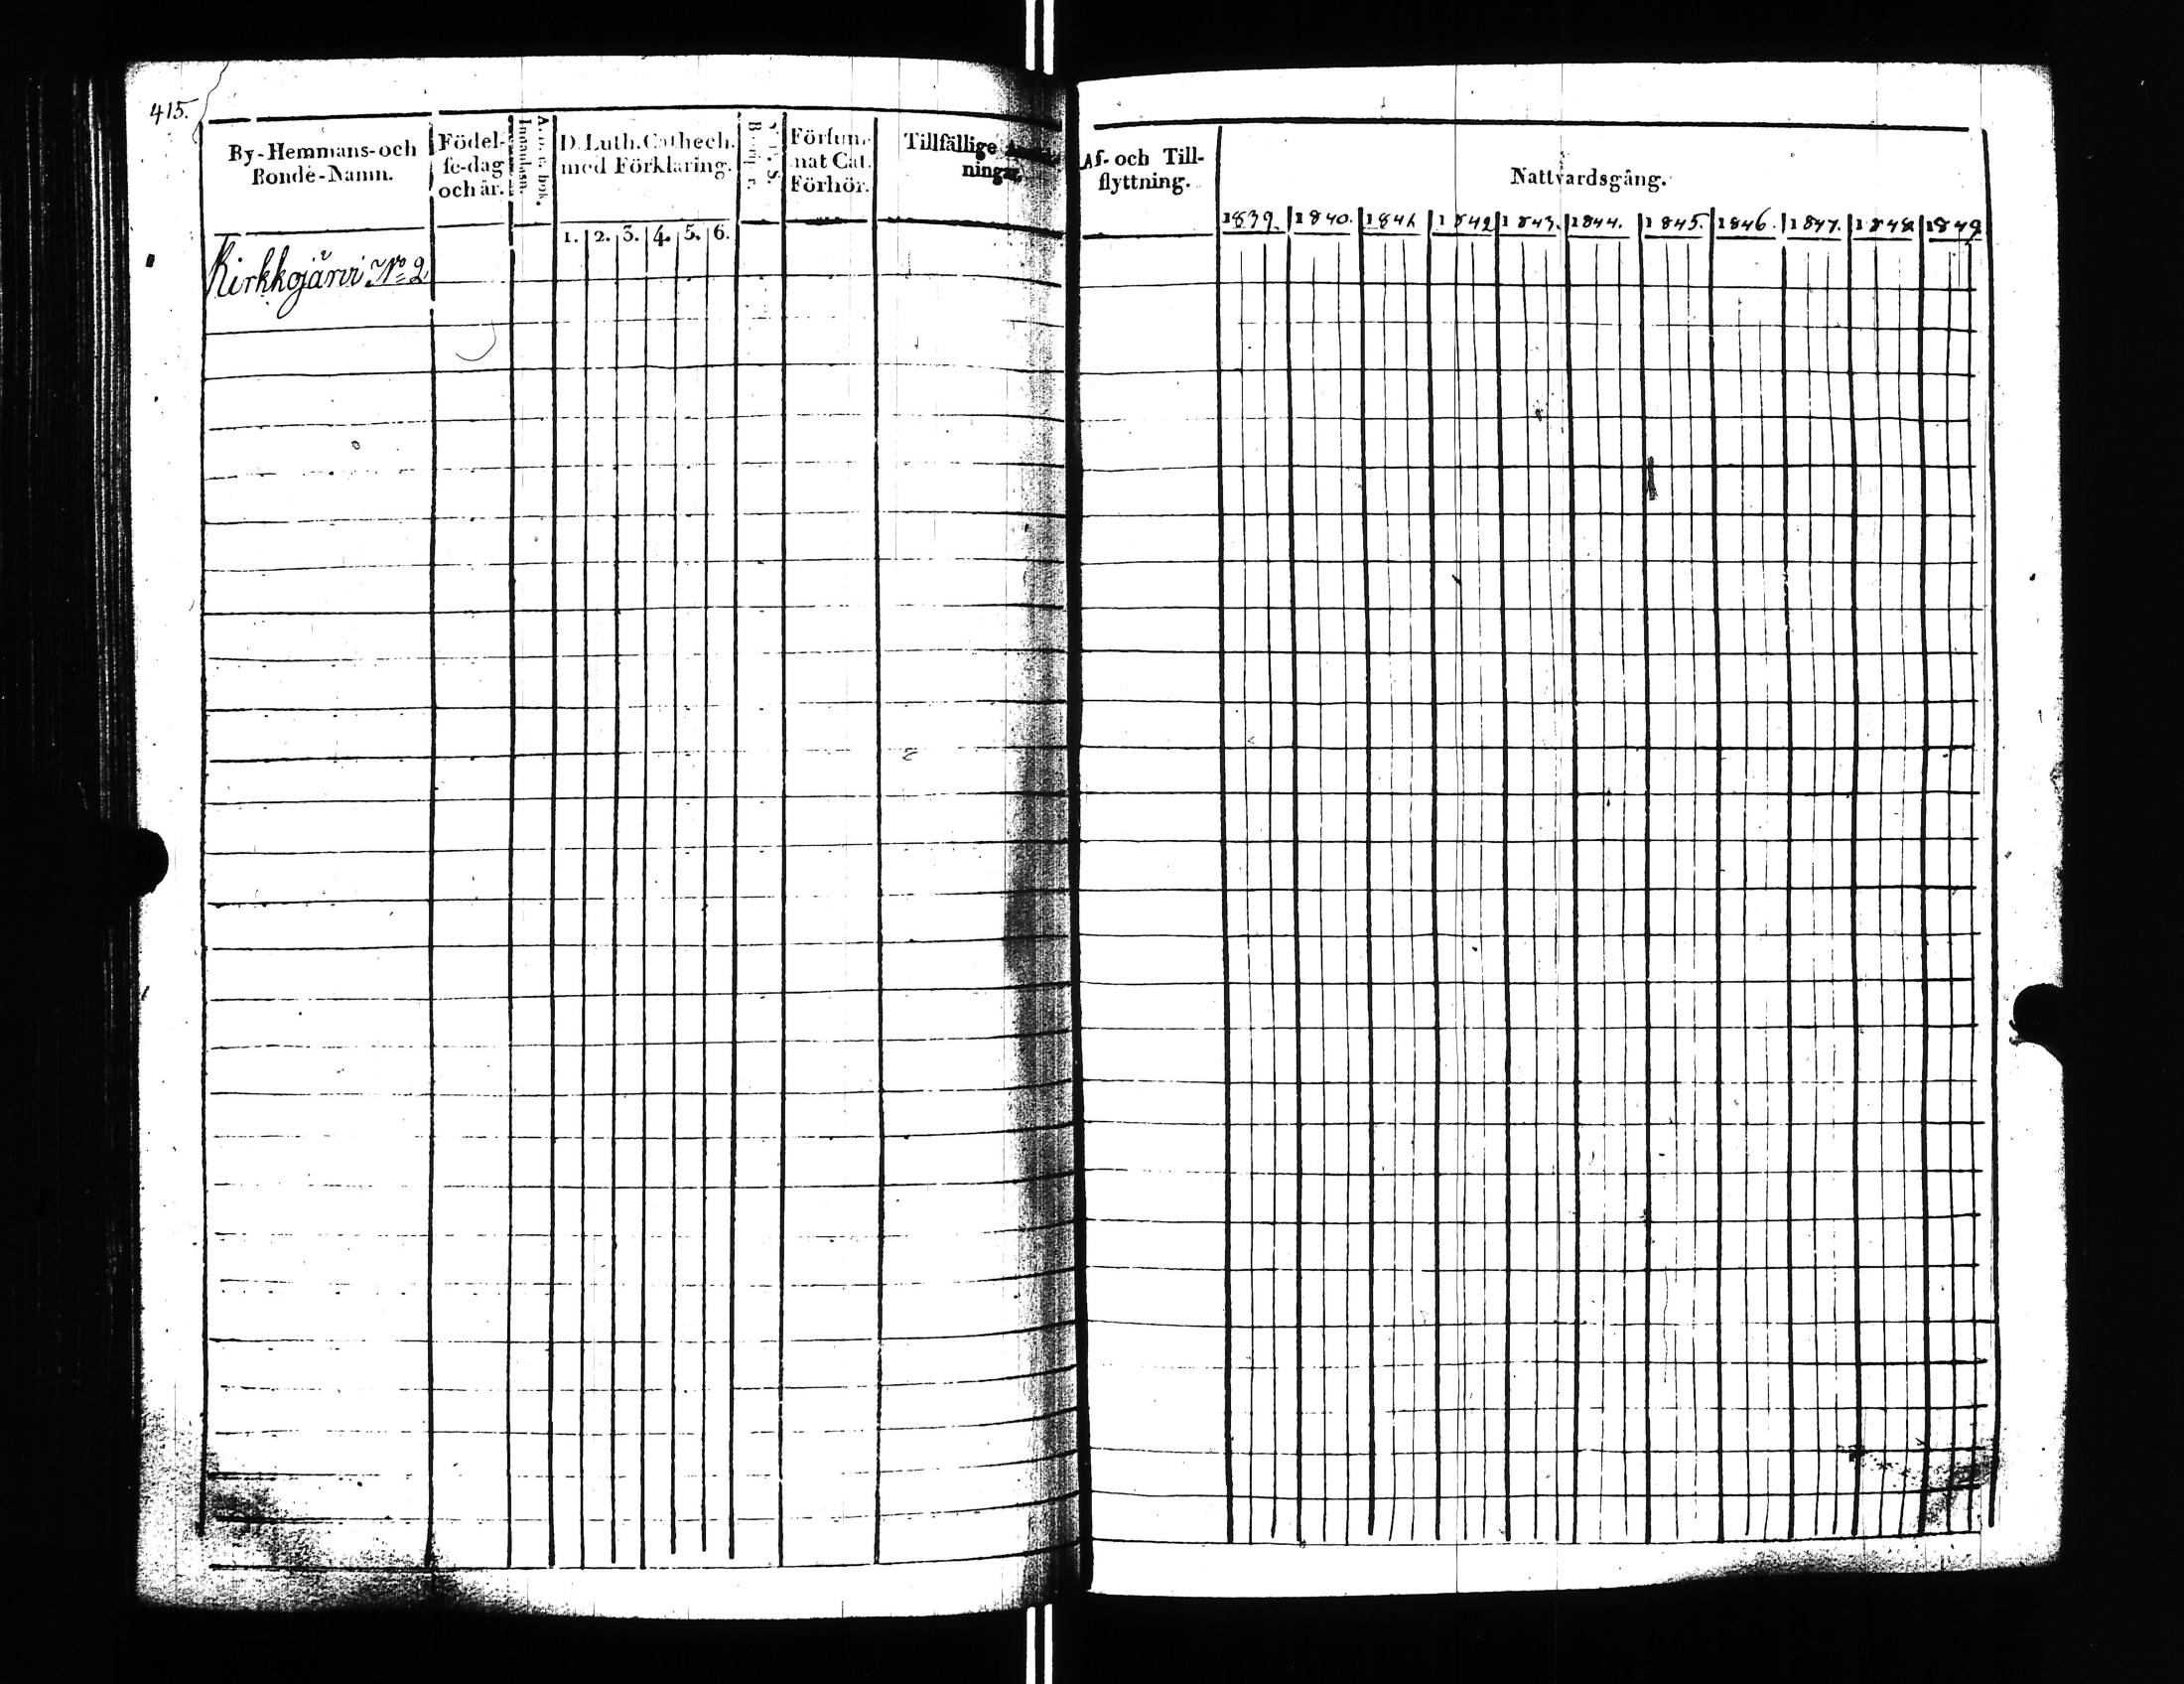 415.
By-Hemmans-och
Bonde-Namn.
Födel-
se-dag
och år.
Innanläsn.
D. Luth. Cathech.
med Förklaring.
1. 2. 3. 4. 5. 6.
Försum-
nat Cat.
Förhör.
Tillfällige
ningar.
Kirkkojärvi No 2
Af- och Till-
flyttning.
Nattvardsgång.
1839. 1840. 1841 1842 1843. 1844. 1845. 1846. 1847. 1848. 1849